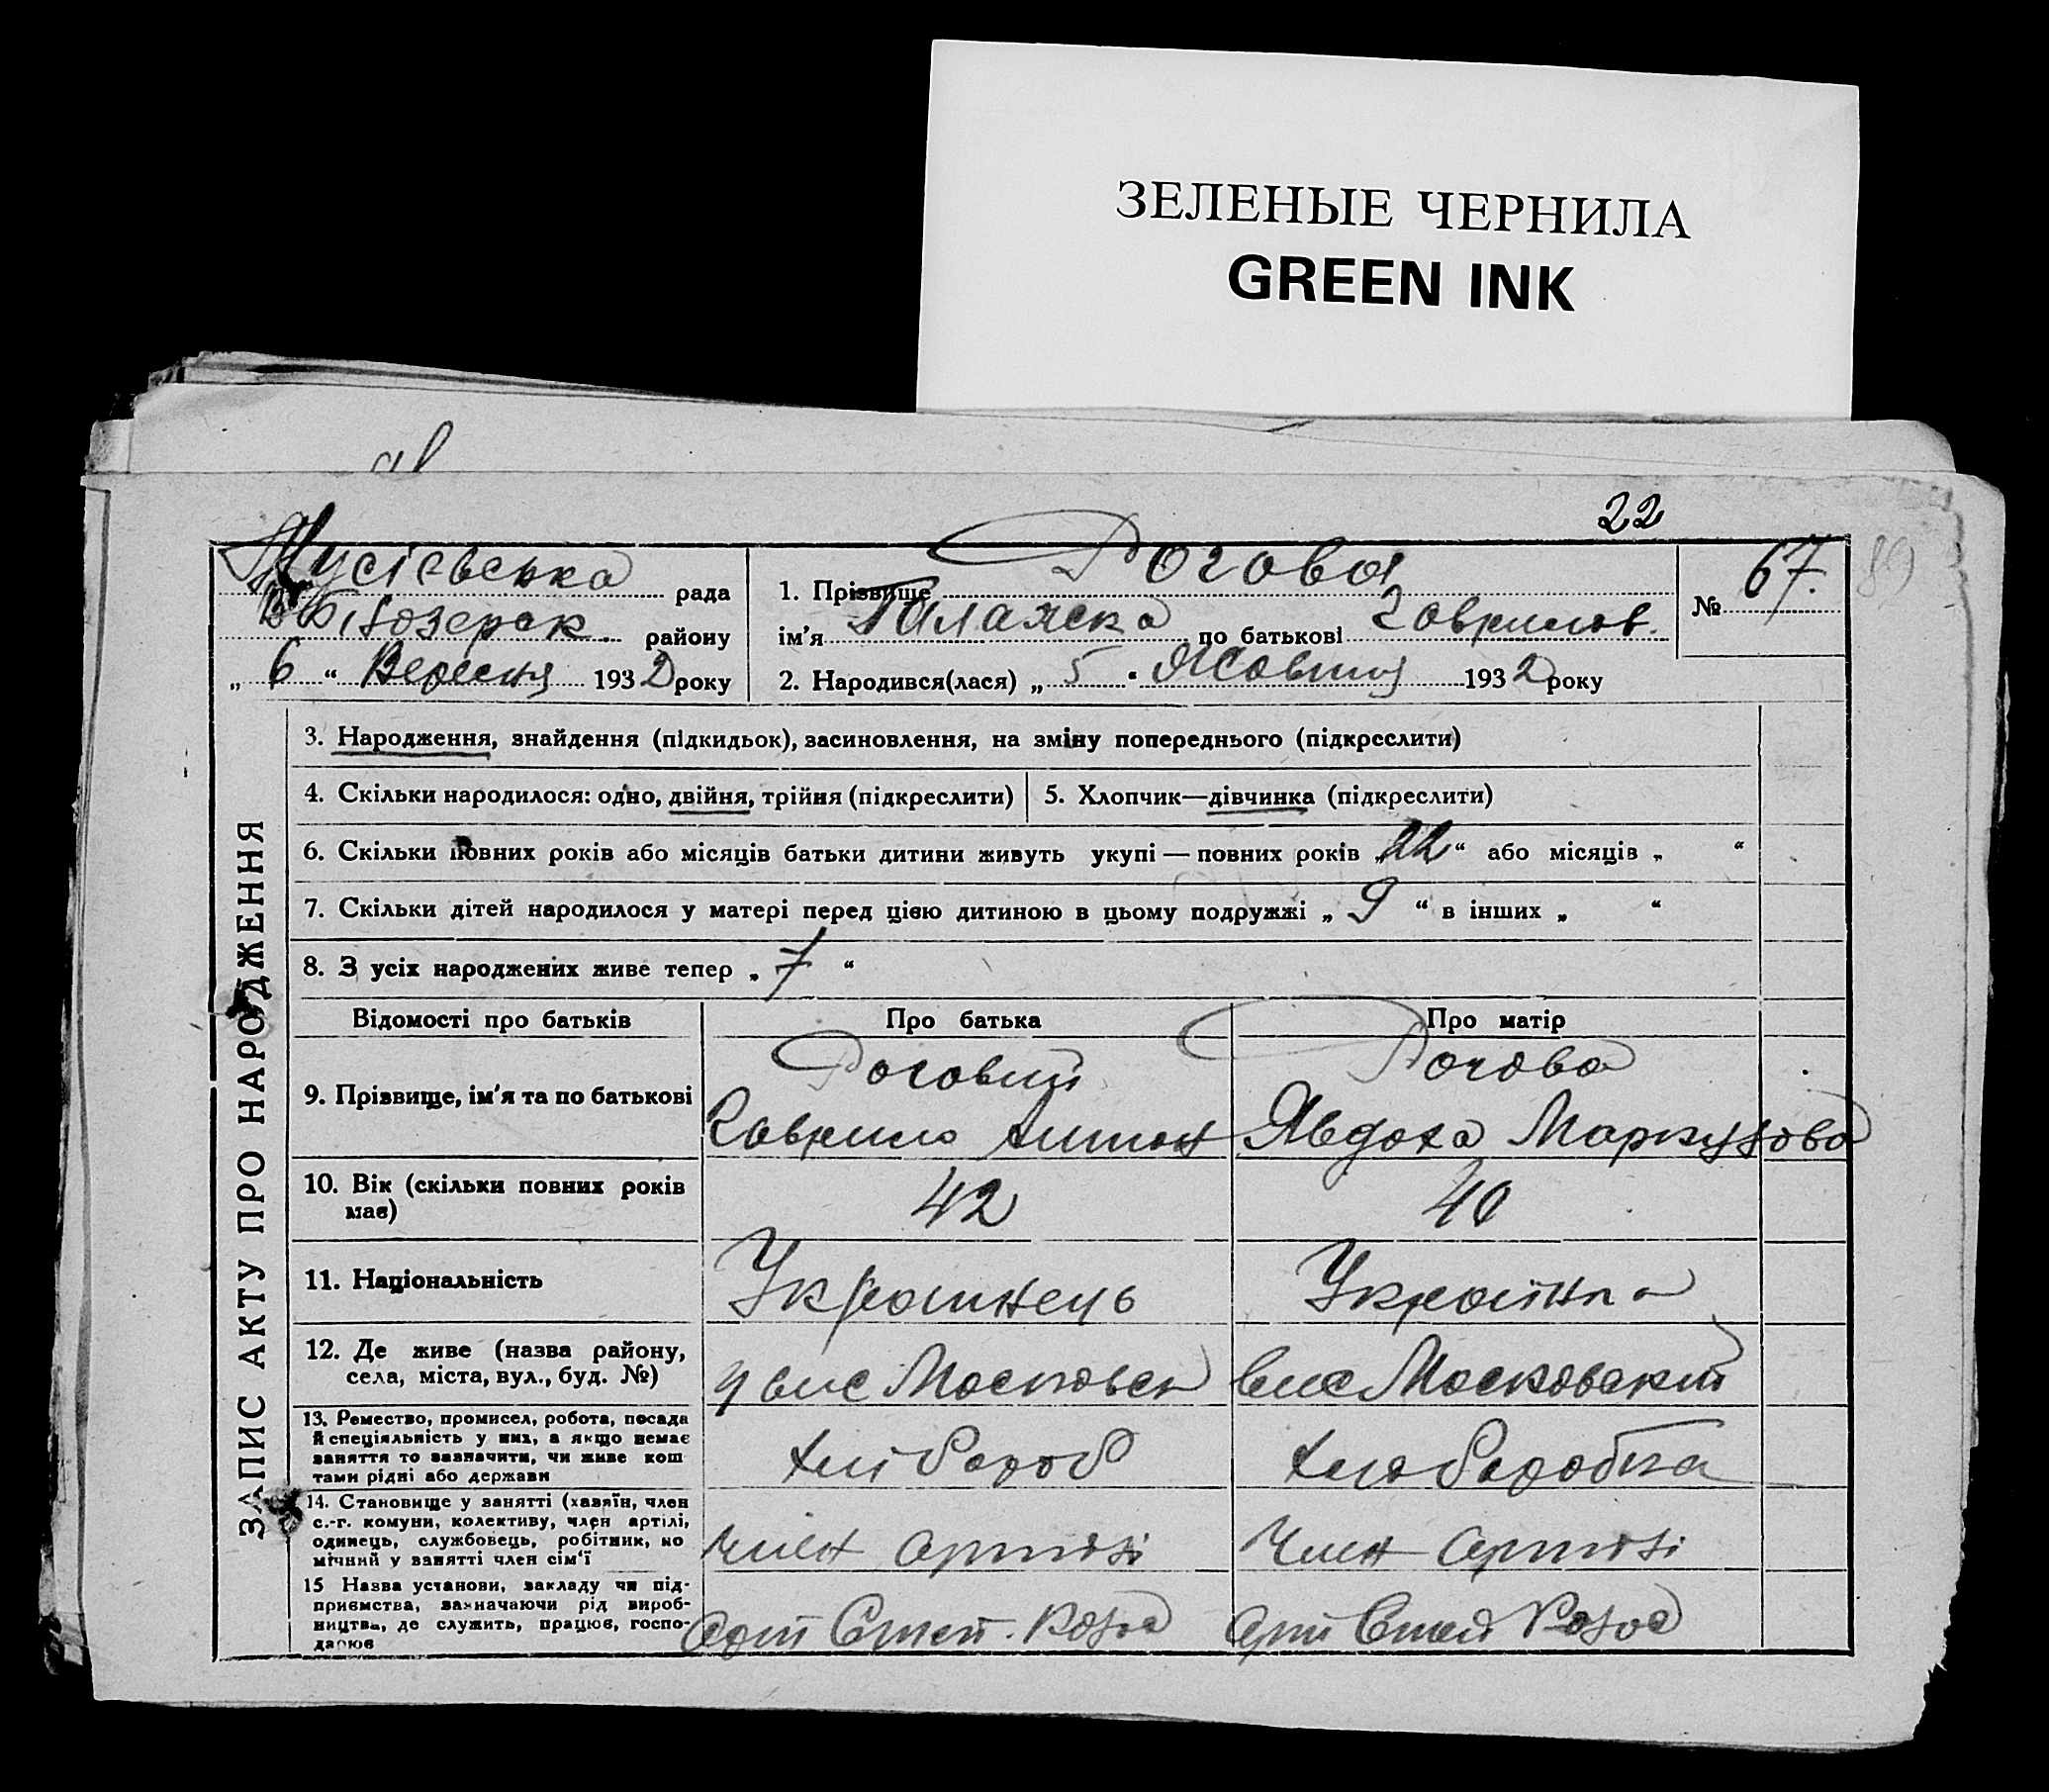 ЗЕЛЕНЫЕ ЧЕРНИЛА
GREEN INK
22
Мусіївська рада
В Білозерск. району
„ 6 “ Вересня 1932 року
1. Прізвище Рогова
ім'я Палажка по батькові Гаврилов.
2. Народився(лася) „ 5 “ Жовтня 1932 року
№ 67.
89
ЗАПИС АКТУ ПРО НАРОДЖЕННЯ
3. Народження, знайдення (підкидьок), засиновлення, на зміну попереднього (підкреслити)
4. Скільки народилося: одно, двійня, трійня (підкреслити) 5. Хлопчик—дівчинка (підкреслити)
6. Скільки повних років або місяців батьки дитини живуть укупі — повних років „22“ або місяців „ “
7. Скільки дітей народилося у матері перед цією дитиною в цьому подружжі „ 9 “ в інших „ “
8. З усіх народжених живе тепер „ 7 “
Відомості про батьків Про батька Про матір
9. Прізвище, ім'я та по батькові
Роговий
Гаврило Антон
Рогова
Явдоха Маркузова
10. Вік (скільки повних років має)
42 40
11. Національність
Українець Українка
12. Де живе (назва району,
села, міста, вул., буд. №)
вис Московск вис Московский
13. Ремество, промисел, робота, посада
й спеціяльність у них, а якщо немає
заняття то зазначити, чи живе кош
тами рідні або держави
хлібороб хліборобка
14. Становище у занятті (хазяїн, член
с.-г. комуни, колективу, член артілі,
одинець, службовець, робітник, по
мічний у занятті член сім'ї
член артілі Член артілі
15 Назва установи, закладу чи під-
приємства, зазначаючи рід вироб-
ництва, де служить, працює, госпо-
дарює
Арт Степ. Арт Степ